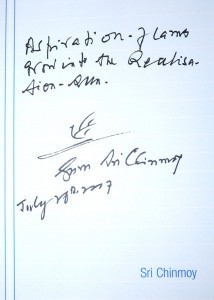 Aspiration-flames
grow into the Realisa-
tion-sun.
Sri Chinmoy
July 2007
Sri Chinmoy